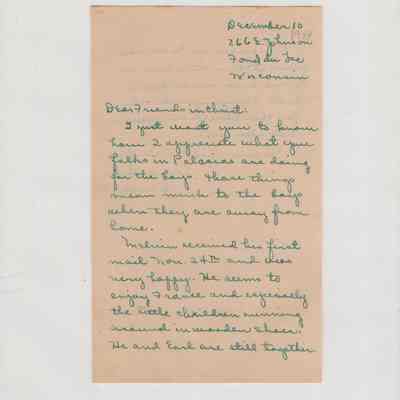 December 10
1944
266 E Johnson
Fond du Lac
Wisconsin
Dear Friends in Christ:
I just want you to know
how I appreciate what you
folks in are doing
for the boys. Those things
mean much to the boys
when they are away from
home.
Melvin received his first
mail Nov. 24th and was
very happy. He seems to
enjoy France and especially
the little children running
around in wooden shoes.
He and Earl are still together